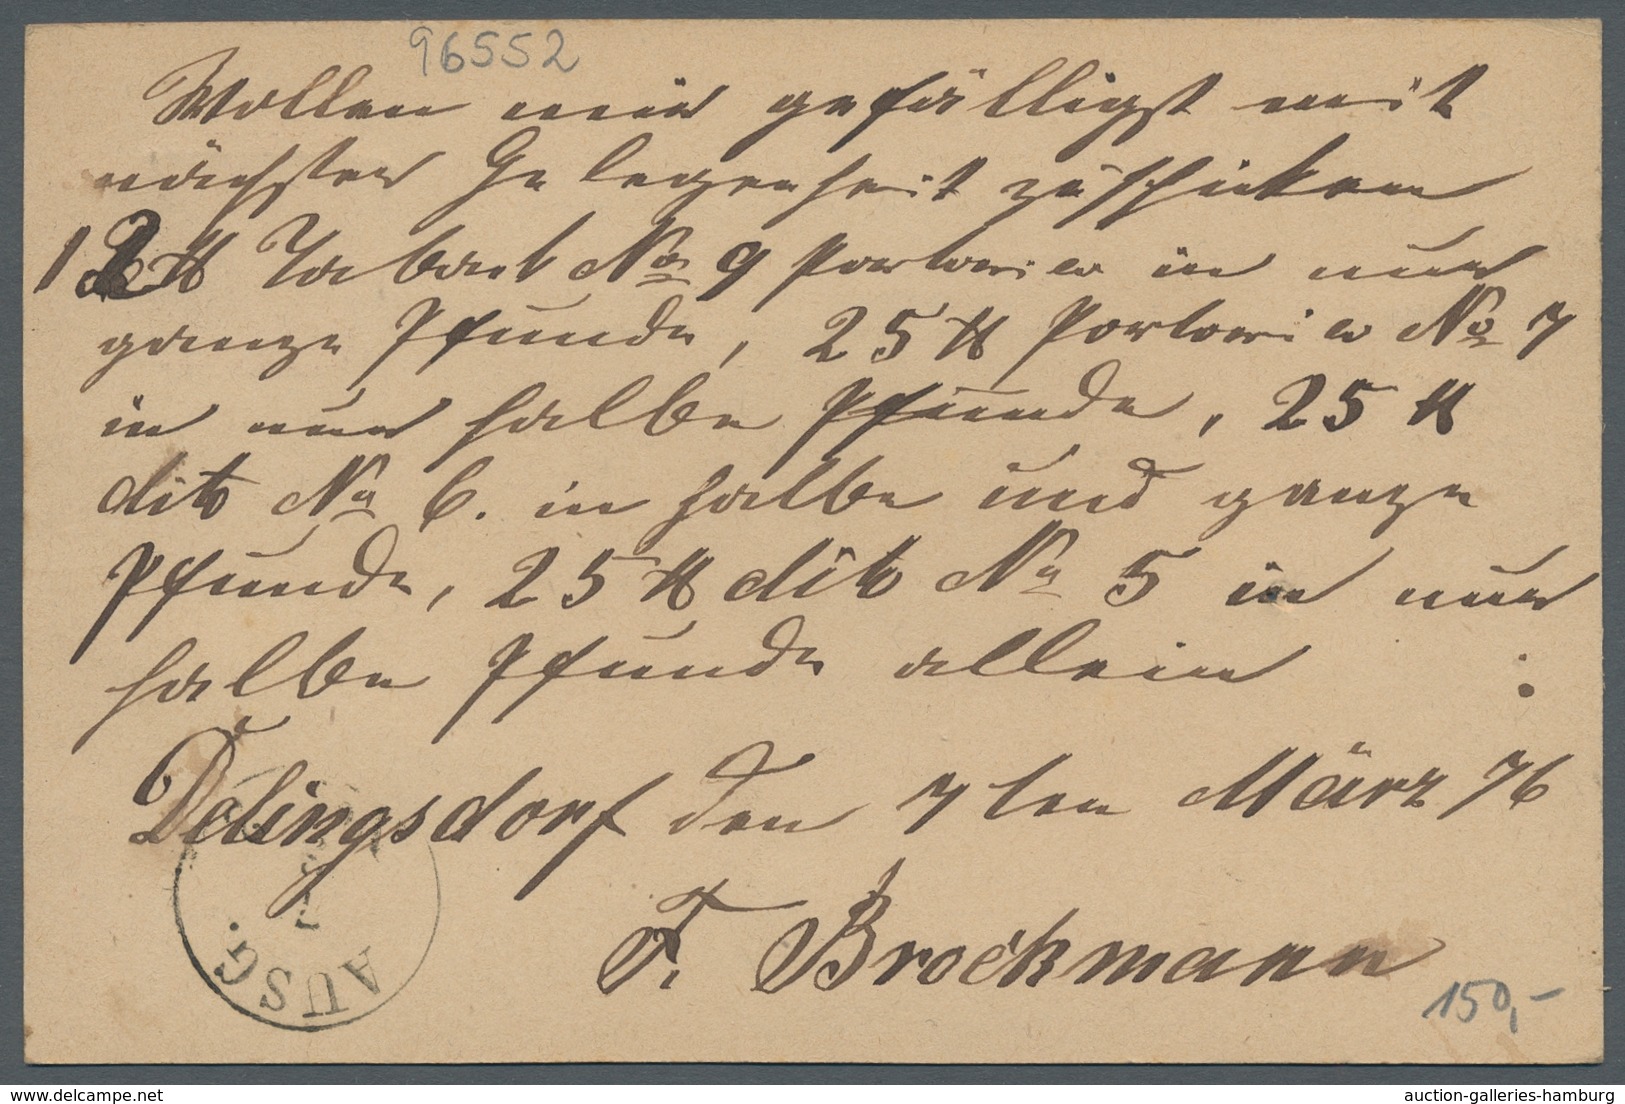 96552
Wollen mir gefälligst mit
nächster Gelegenheit zuschicken
12 ℔ Taback No 9 Portorico in nur
ganze Pfunde, 25 ℔ Portorico No 7
in nur halbe Pfunde, 25 ℔
dito No 6. in halbe und ganze
Pfunde, 25 ℔ dito No 5 in nur
halbe Pfunde allein :
Delingsdorf den 7ten März 76
F. Brockmann
AUSG.
150,-
delcampe.net
auction-galleries-hamburg